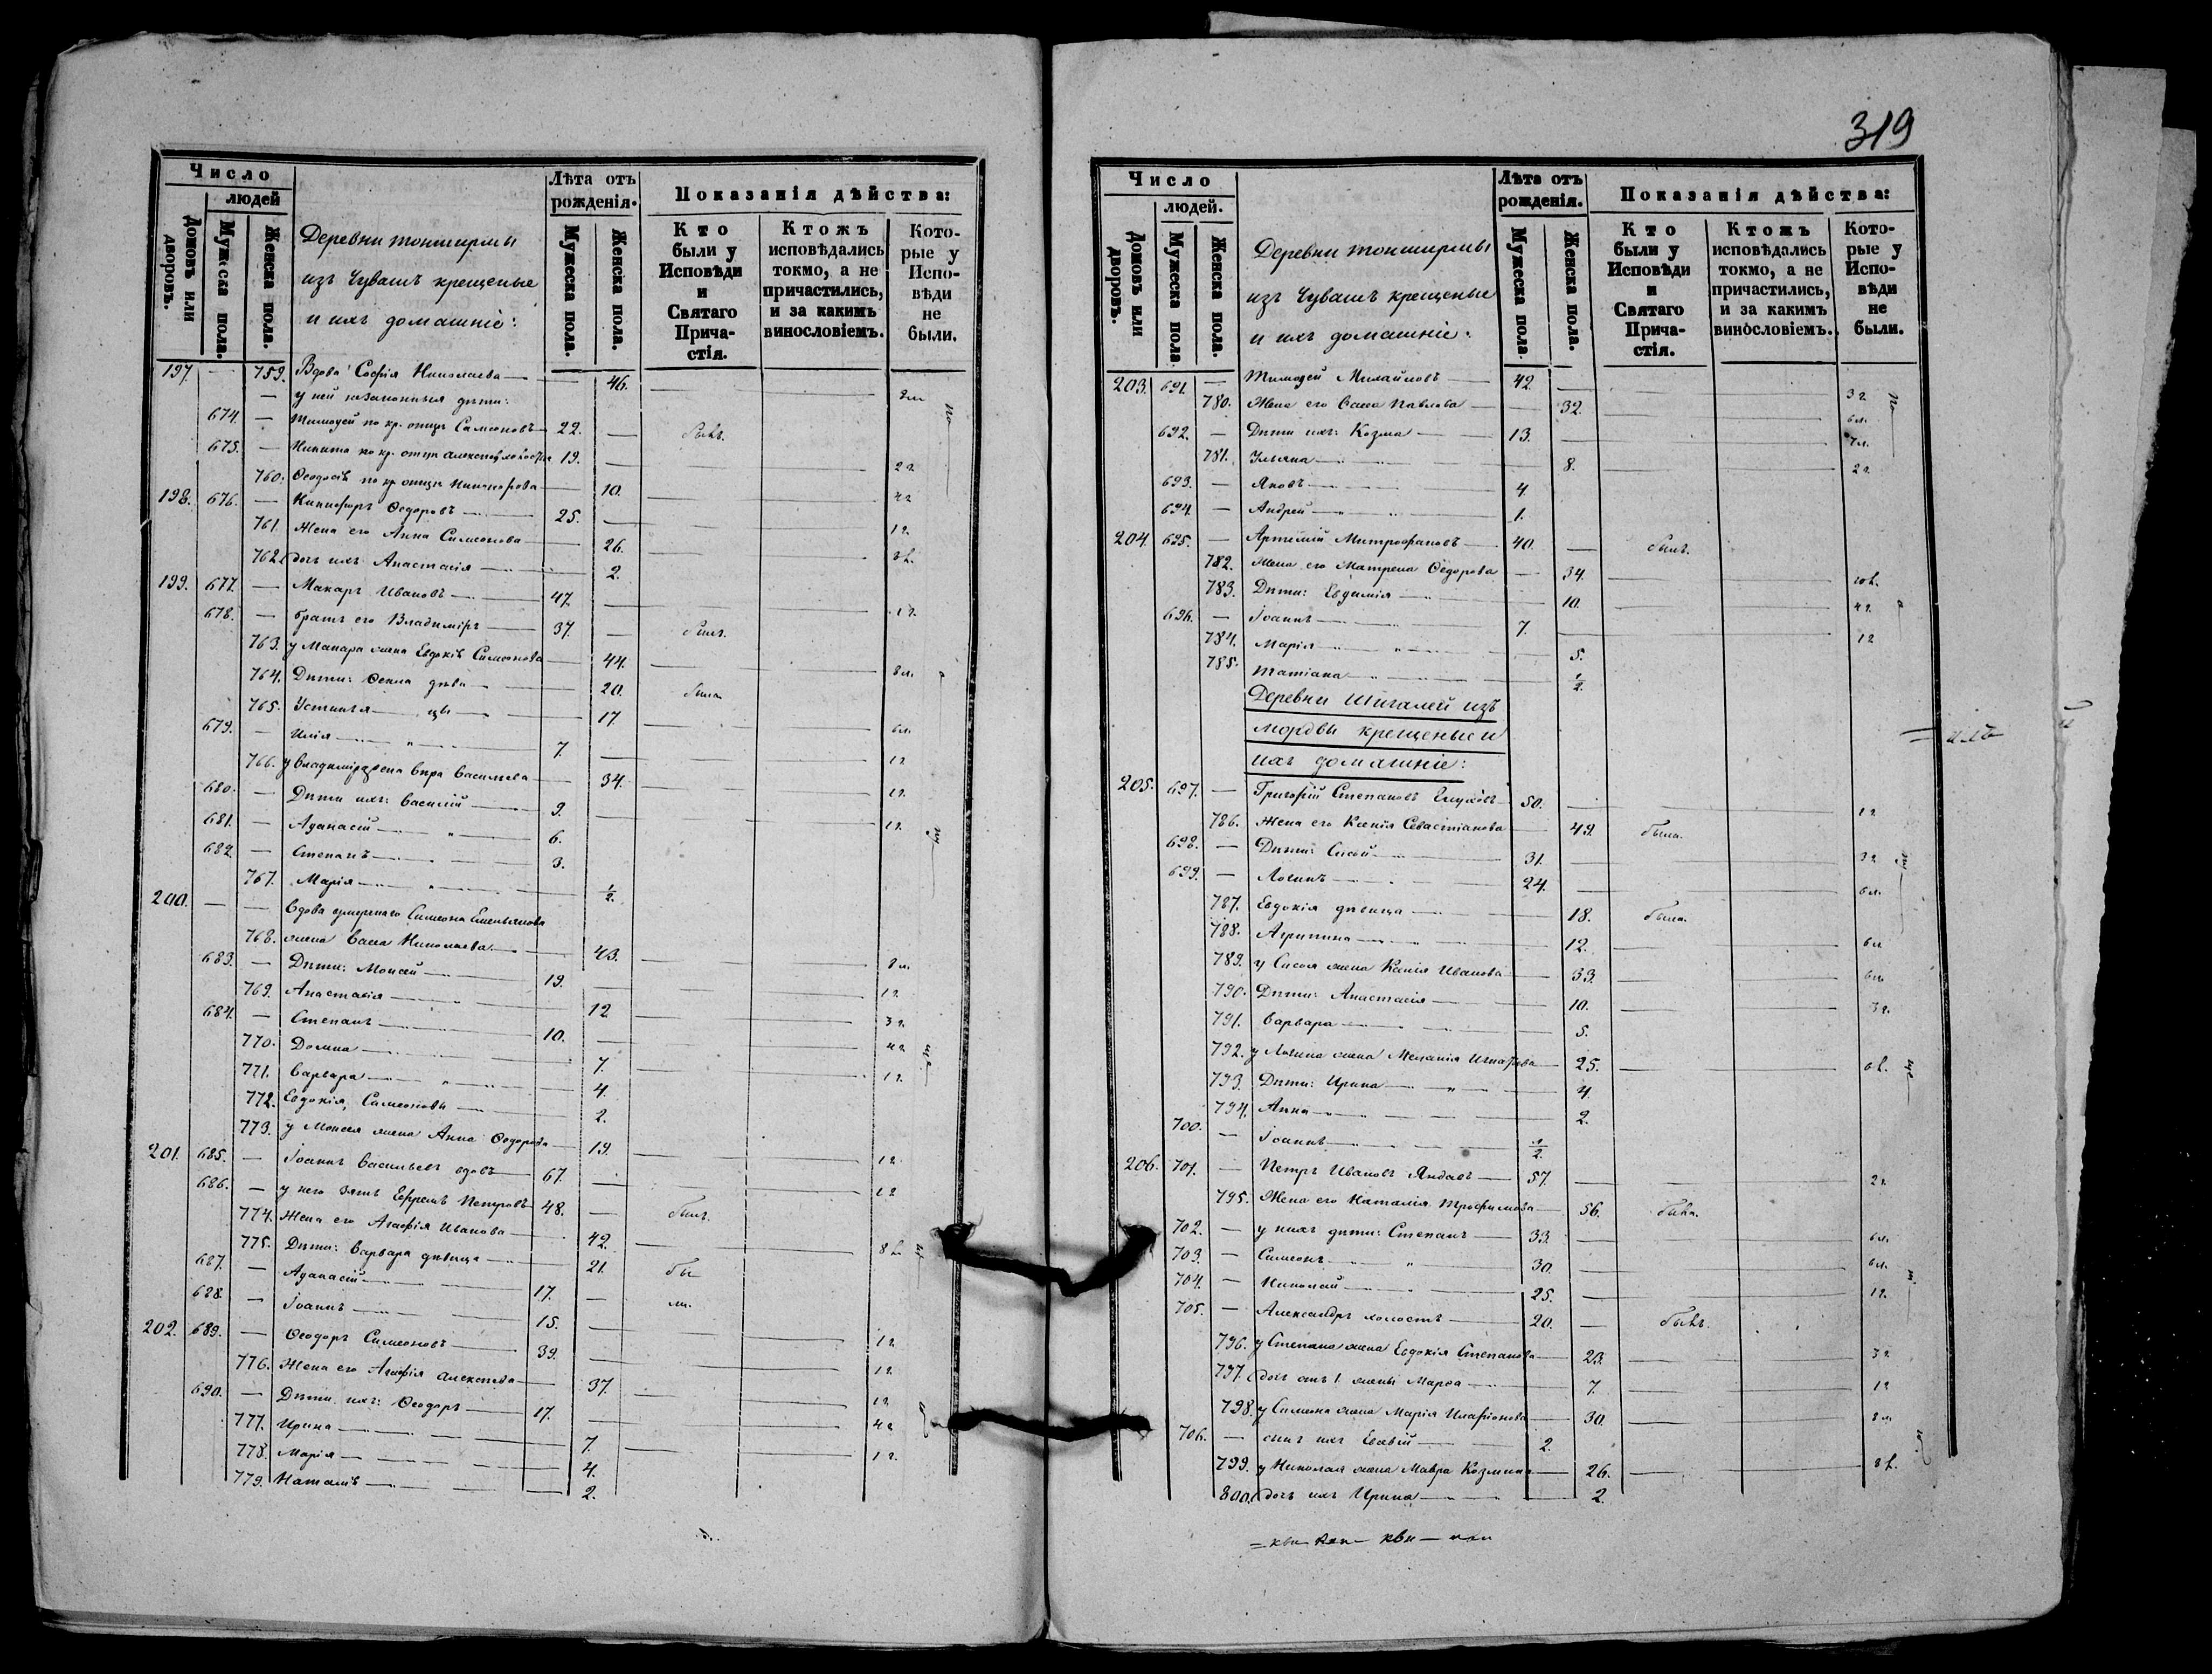 319
Число
людей
Домовъ или дворовъ.
Мужеска пола.
Женска пола.
Деревни Тонширмы
изъ Чувашъ крещеные
и ихъ домашніе:
Лѣта отъ рожденія.
Мужеска пола.
Женска пола.
Показанія дѣйства:
Кто были у Исповѣди и Святаго Причастія.
Ктожъ исповѣдались токмо, а не причастились, и за какимъ винословіемъ.
Которые у Исповѣди не были.
197. — 759. Вдова Софія Николаева — 46.
— у ней незаконныя дѣти:
674. — Тимоѳей по кр. отцу Симеоновъ 22. — былъ.
675. — Никита по кр. отцу 19. —
760. Ѳеодосія по кр. отцу Никифорова — 10. 2 г.
198. 676. — Никифоръ Ѳедоровъ 25. —
761. Жена его Анна Симеонова — 26. 1 г.
762. дочь ихъ Анастасія — 2.
199. 677. — Макаръ Ивановъ 47. —
678. — Братъ его Владиміръ 37. — былъ.
763. у Макара жена Евдокія Симеонова — 44.
764. Дѣти: Ѳекла дѣви 20. была
765. Устинья цы 17.
679. — Илія „ 7. —
766. у Владиміра жена Вѣра Васильева — 34. 1 г.
680. — Дѣти ихъ: Василій 9. — 1 г.
681. — Аѳанасій „ 6. 1 г.
682. — Степанъ 3.
767. Марія „ ½.
200. — — Вдова умершаго Симеона Емельянова
768. жена Васса Николаева — 43.
683. — Дѣти: Моисей 19. —
769. Анастасія 12. 1 г.
684. — Степанъ 10. — 3 г.
770. Домна 7.
771. Варвара „ 4. 1 г.
772. Евдокія, Симеоновы 2.
773. у Моисея жена Анна Ѳеодорова — 19.
201. 685. — Іоаннъ Васильевъ вдовъ 67. — 1 г.
686. — у него зять Ефремъ Петровъ 48. — былъ.
774. Жена его Агафія Иванова 42.
775. Дѣти: Варвара дѣвица 21. бы
687. — Аѳанасій 17. — ли.
688. — Іоаннъ 15. —
202. 689. — Ѳеодоръ Симеоновъ 39. — 1 г.
776. Жена его Агафія Алексѣева — 37. 1 г.
690. — Дѣти ихъ: Ѳеодоръ 17. — 1 г.
777. Ирина 7. 4 г.
778. Марія 4. 1 г.
779. Наталія 2.
Число
людей.
Домовъ или дворовъ.
Мужеска пола
Женска пола.
Деревни Тонширмы
изъ Чувашъ крещеные
и ихъ домашніе:
Лѣта отъ рожденія.
Мужеска пола.
Женска пола.
Показанія дѣйства:
Кто были у Исповѣди и Святаго Причастія.
Ктожъ исповѣдались токмо, а не причастились, и за какимъ винословіемъ.
Которые у Исповѣди не были.
203. 691. — Тимоѳей Михайловъ 42. — 3 г.
780. Жена его Васса Павлова — 32.
692. — Дѣти ихъ: Козма 13. —
781. Ульяна 8. 2 г.
693. — Яковъ 4.
694. — Андрей 1.
204. 695. — Артемій Митрофановъ 40. — былъ.
782. Жена его Матрена Ѳедорова — 34.
783. Дѣти: Евфимія 10. 4 г.
696. — Іоаннъ 7. 1 г.
784. Марія 5.
785. Татіана ½.
Деревни Шигалей изъ
мордвы крещеные и
ихъ домашніе:
205. 697. — Григорій Степановъ 50. — 1 г.
786. Жена его Ксенія Севастіанова — 49. была.
698. — Дѣти: Сисой 31. — 3 г.
699. — Логинъ 24. —
787. Евдокія дѣвица 18. была.
788. Агрипина 12.
789. у Сисоя жена Ксенія Иванова 33.
790. Дѣти: Анастасія 10. 3 г.
791. Варвара 5.
792. у Логина жена Меланія Игнатьева 25.
793. Дѣти: Ирина „ 4.
794. Анна 2.
700. — Іоаннъ ½.
206. 701. — Петръ Ивановъ 57. — 2 г.
795. Жена его Наталія Трофимова — 56. была.
702. — у нихъ дѣти: Степанъ 33. —
703. — Симеонъ „ 30.
704. — Николай „ 25. 1 г.
705. — Александръ холостъ 20. — былъ.
796. у Степана жена Евдокія Степанова 23. 3 г.
797. дочь отъ 1 жены Марѳа 7. 1 г.
798. у Симеона жена Марія Иларіонова 30.
706. — сынъ ихъ 2.
799. у Николая жена Мавра Козмина 26.
800. дочь ихъ Ирина 2.